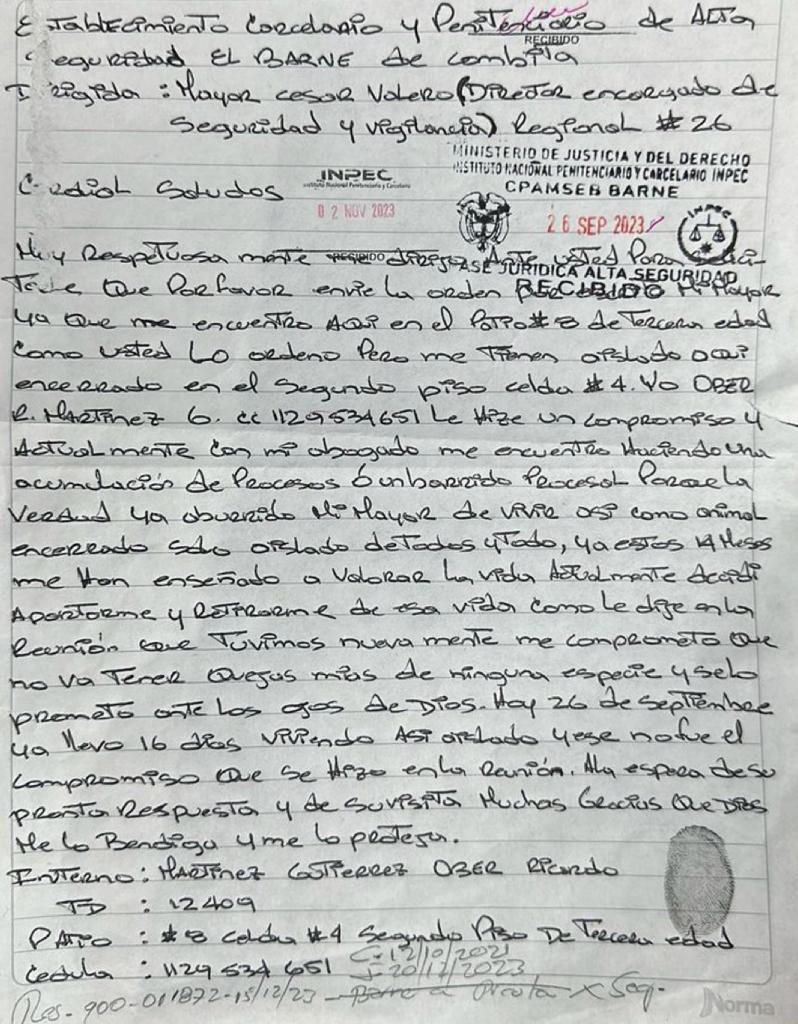 Establecimiento Carcelario y Penitenciario de Alta
Seguridad EL BARNE de Combita
RECIBIDO
Dirigida : Mayor cesar Valero (Director encargado de
Seguridad y vigilancia) Regional # 26
MINISTERIO DE JUSTICIA Y DEL DERECHO
INSTITUTO NACIONAL PENITENCIARIO Y CARCELARIO INPEC
CPAMSEB BARNE
INPEC
Instituto Nacional Penitenciario y Carcelario
Cordial Saludos
02 NOV 2023
26 SEP 2023
INPEC
Muy Respetuosa mente me dirijo Ante usted Para Solici-
RECIBIDO
ASE JURIDICA ALTA SEGURIDAD
RECIBIDO
Tarle Que Porfavor envie la orden Mi Mayor
ya Que me encuentro AQui en el Patio # 8 de Tercera edad
Como usted Lo ordeno Pero me Tienen aislado aqui
encerrado en el Segundo piso celda # 4. Yo OBER
R. MARTINEZ G. cc 1129534651 Le Hize un compromiso y
Actualmente con mi abogado me encuentro Haciendo una
acumulación de Procesos ó un barrido Procesal Porque la
Verdad ya aburrido Mi Mayor de vivir asi como animal
encerrado solo aislado de Todos y Todo, ya estos 14 Meses
me Han enseñado a Valorar la vida Actualmente decidi
Apartarme y Retirarme de esa vida como le dije en la
Reunión que Tuvimos nueva mente me comprometo Que
no va Tener Quejas mias de ninguna especie y se lo
prometo ante los ojos de Dios. Hoy 26 de septiembre
ya llevo 16 dias viviendo Asi aislado y ese no fue el
compromiso Que se Hizo en la Reunión. A la espera de su
pronta Respuesta y de su visita Muchas Gracias Que Dios
Me lo Bendiga y me lo proteja.
Interno : MARTINEZ GUTIERREZ OBER Ricardo
TD : 12409
PATIO : # 8 celda # 4 Segundo Piso De Tercera edad
Cedula : 1129 534 651
C-12/10/2021
J-20/12/2023
Res- 900-011872-15/12/23 - Barne a Picota x Seg.
Norma